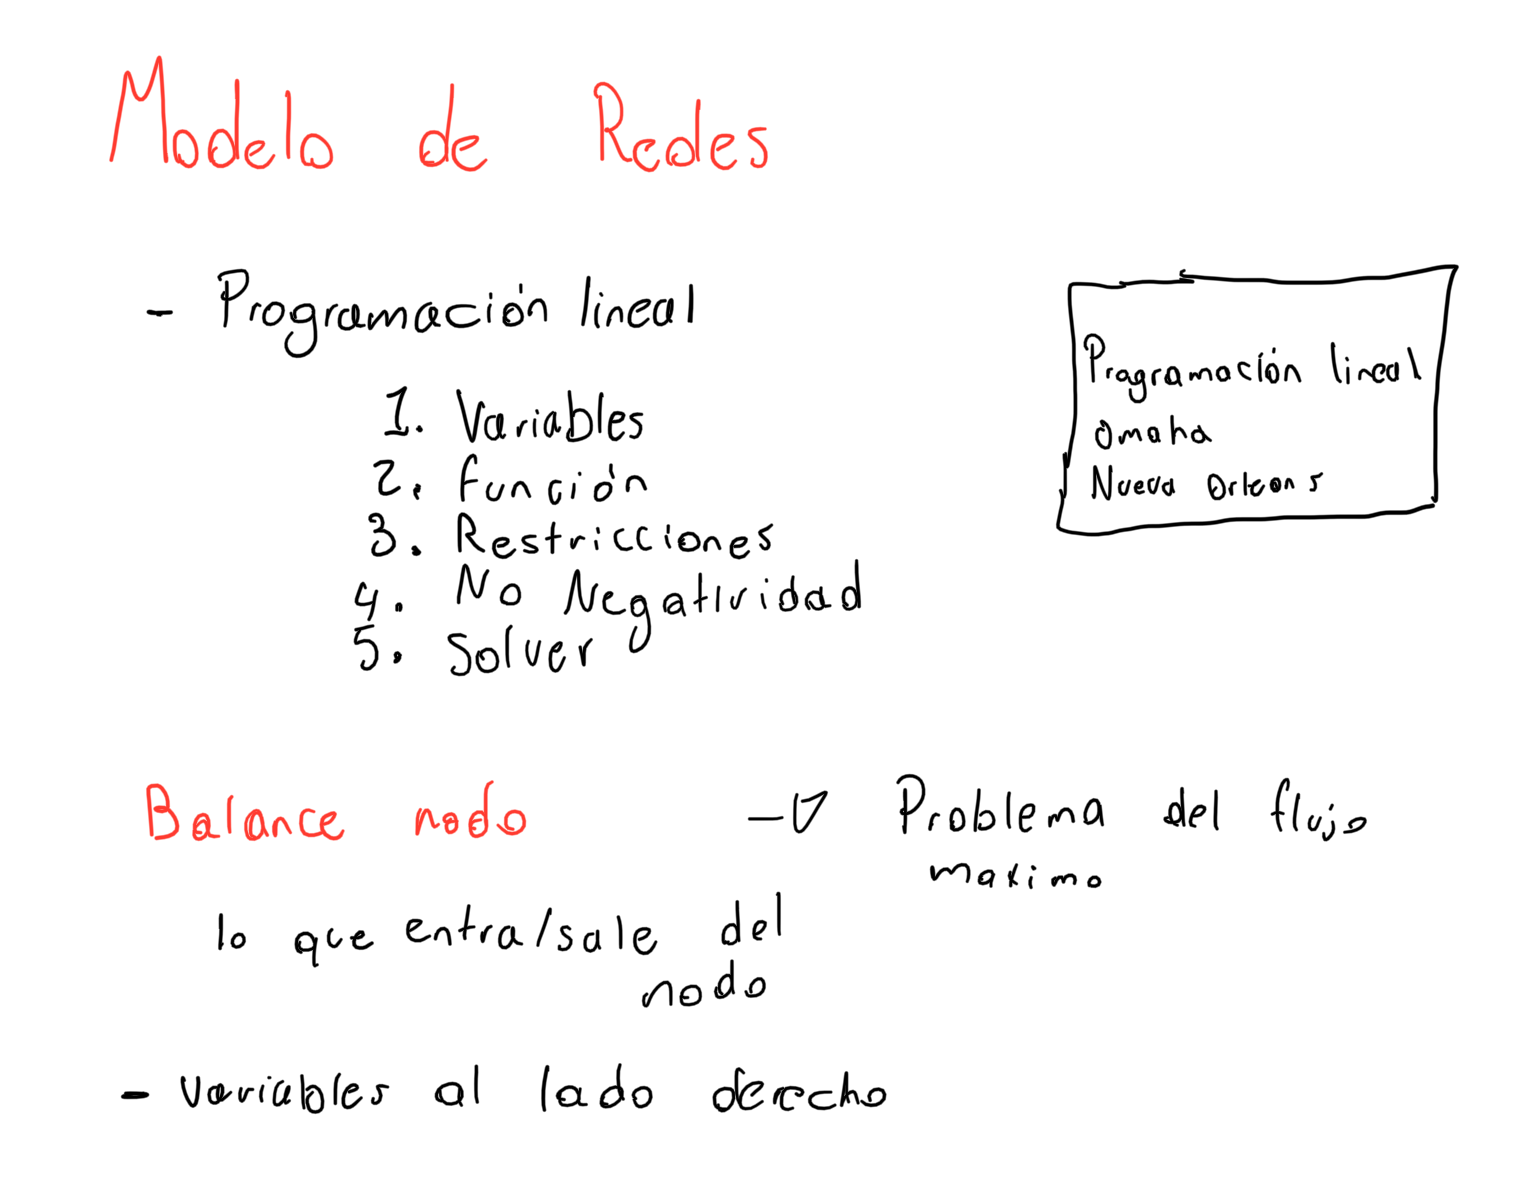 Modelo de Redes
- Programación lineal
1. Variables
2. Función
3. Restricciones
4. No Negatividad
5. Solver
Programación lineal
Omaha
Nueva Orleans
Balance nodo -> Problema del flujo
maximo
lo que entra/sale del
nodo
- Variables al lado derecho